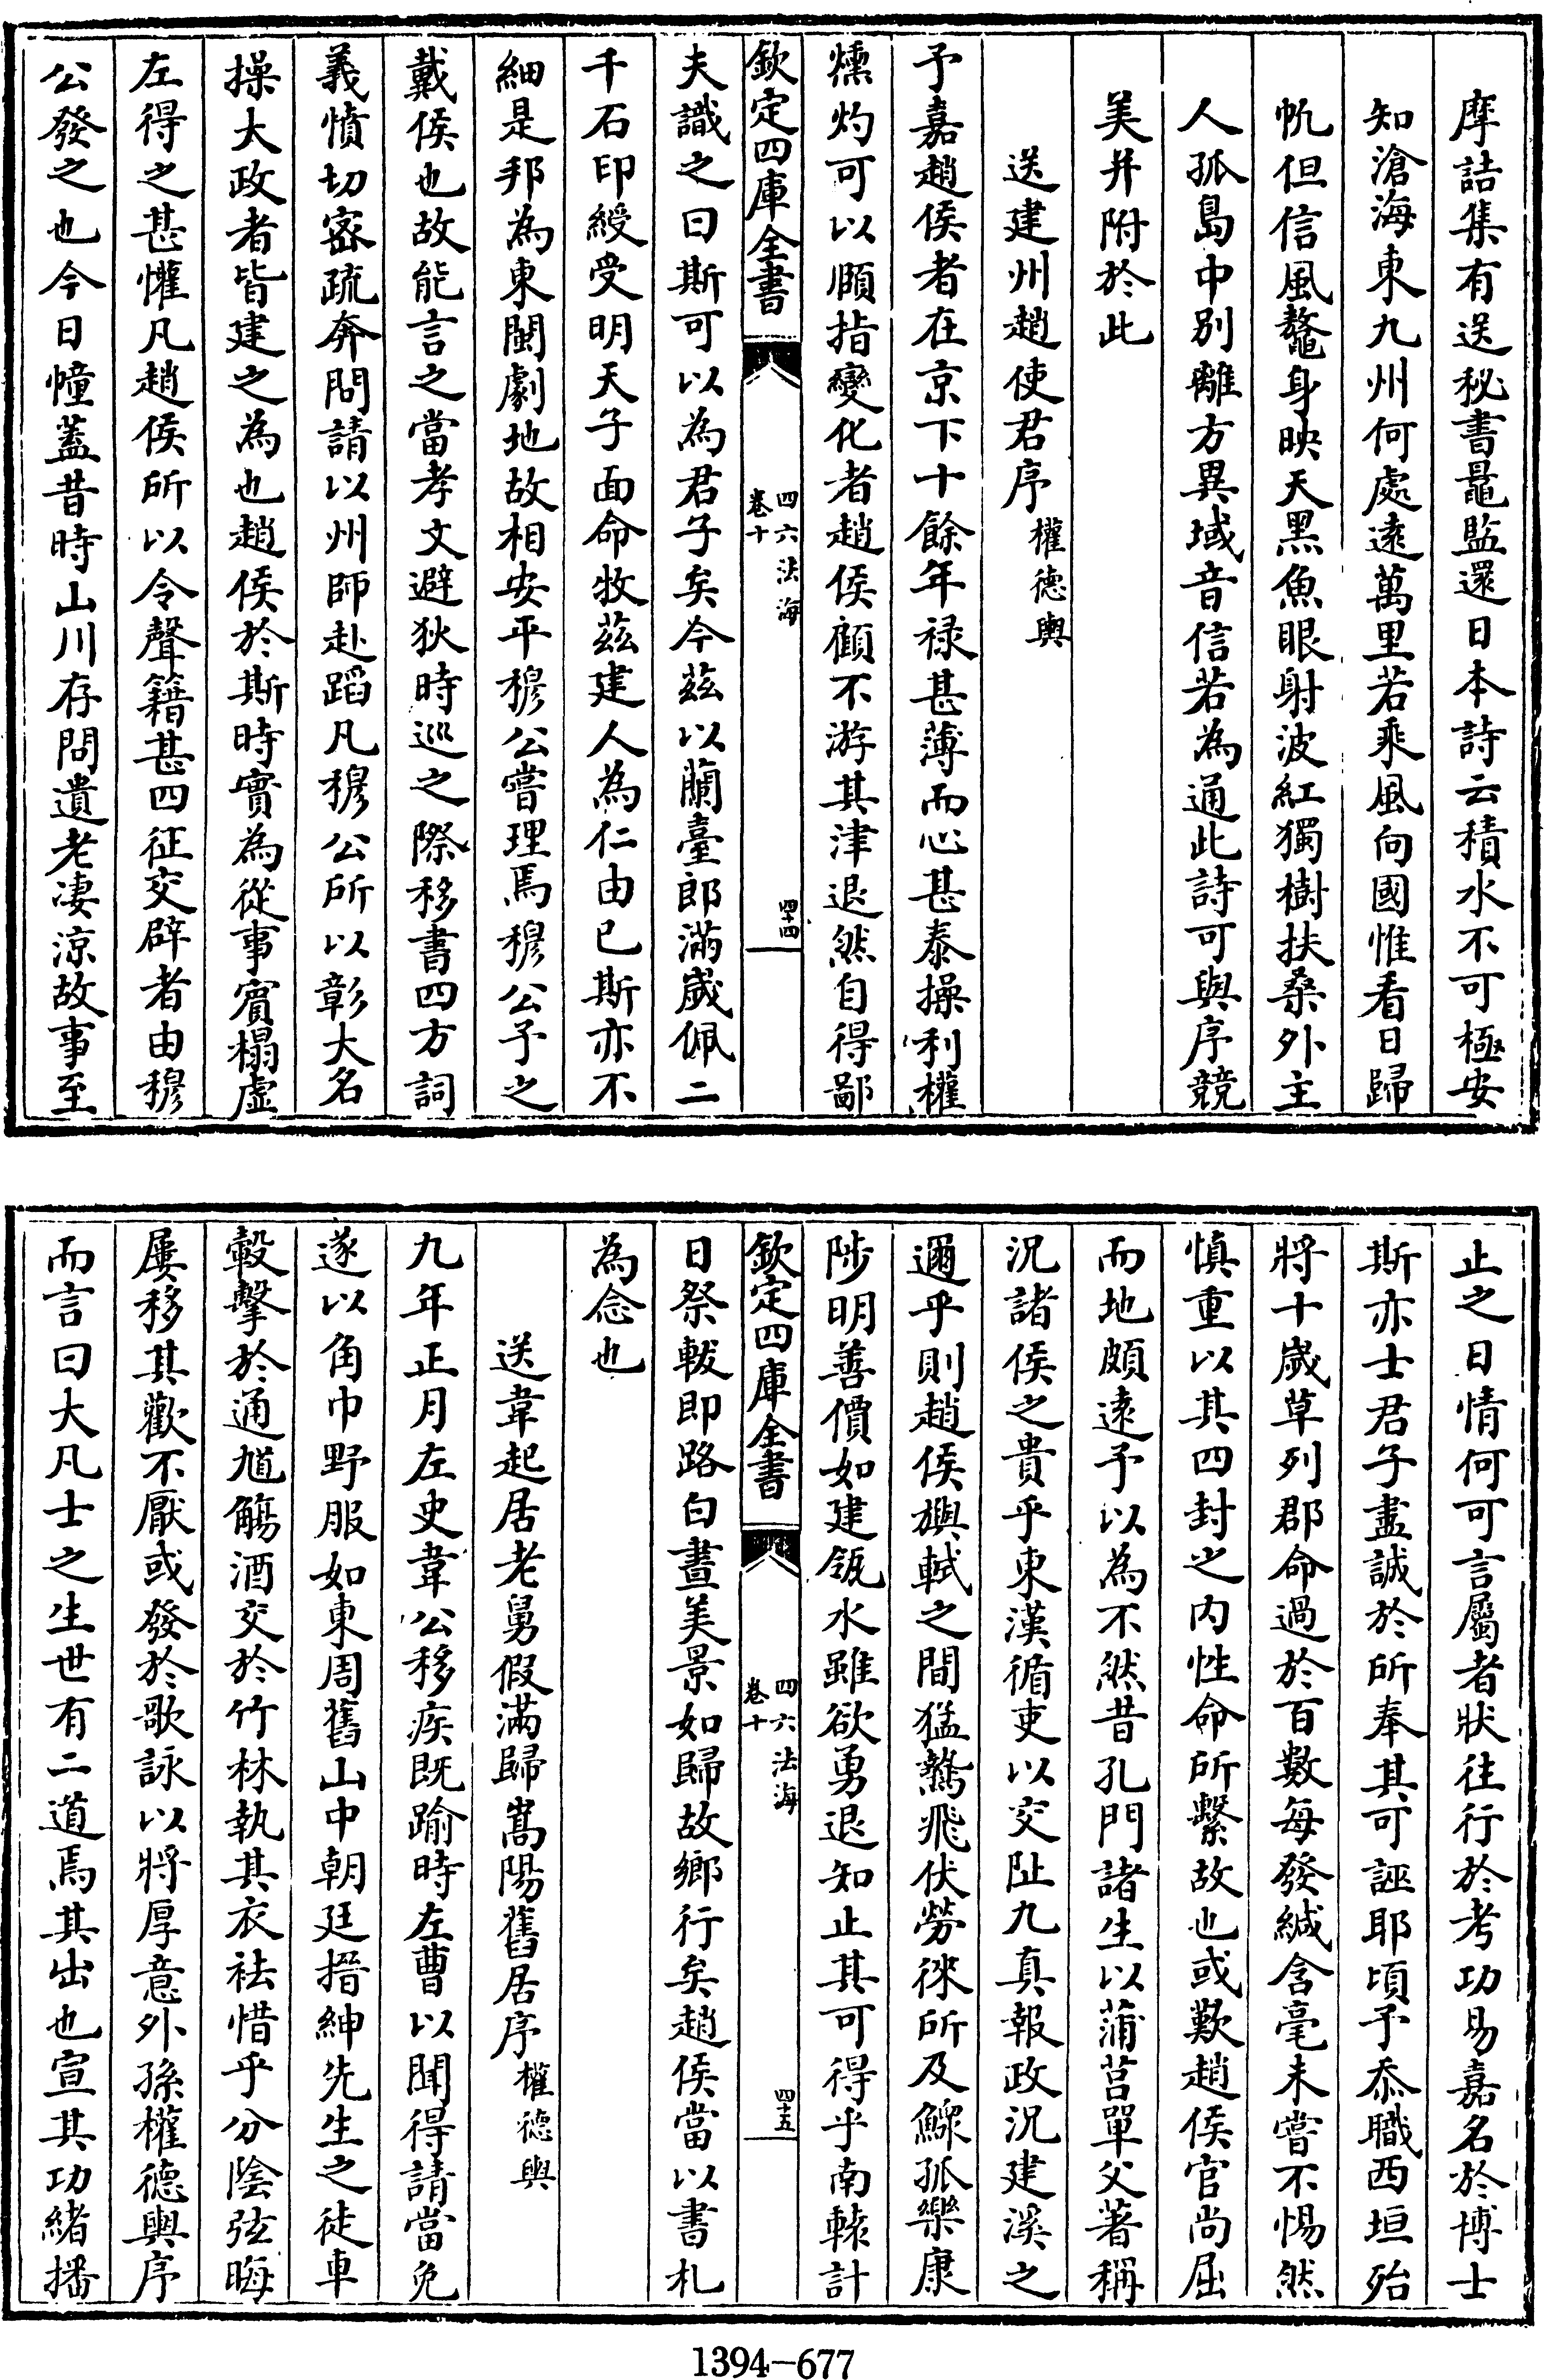 摩詰集有送秘書鼂監還日本詩云積水不可極安
知滄海東九州何處逺萬里若乘風向國惟看日歸
帆但信風鼇身映天黑魚眼射波紅獨樹扶桑外主
人孤島中別離方異域音信若為通此詩可與序競
美并附於此
送建州趙使君序權德輿
予嘉趙侯者在京下十餘年禄甚薄而心甚泰操利權
燻灼可以頤指變化者趙侯顧不游其津退然自得鄙
欽定四庫全書
四六法海
卷十
四十四
夫識之曰斯可以為君子矣今茲以蘭臺郎滿嵗佩二
千石印綬受明天子面命牧茲建人為仁由已斯亦不
細是邦為東閩劇地故相安平穆公嘗理焉穆公予之
戴侯也故能言之當孝文避狄時巡之際移書四方詞
義憤切宻疏奔問請以州師赴蹈凡穆公所以彰大名
操大政者皆建之為也趙侯於斯時實為從事賓榻虛
左得之甚懽凡趙侯所以令聲籍甚四征交辟者由穆
公發之也今日幢蓋昔時山川存問遺老凄涼故事至
止之日情何可言屬者狀往行於考功易嘉名於博士
斯亦士君子盡誠於所奉其可誣耶頃予忝職西垣殆
將十嵗草列郡命過於百數每發緘含毫未嘗不惕然
慎重以其四封之内性命所繫故也或歎趙侯官尚屈
而地頗逺予以為不然昔孔門諸生以蒲莒單父著稱
況諸侯之貴乎東漢循吏以交阯九真報政況建溪之
邇乎則趙侯輿軾之間猛鷙飛伏勞徠所及鰥孤樂康
陟明善價如建瓴水雖欲勇退知止其可得乎南轅計
欽定四庫全書
四六法海
卷十
四十五
日祭軷即路白晝美景如歸故鄉行矣趙侯當以書札
為念也
送韋起居老舅假滿歸嵩陽舊居序權德輿
九年正月左史韋公移疾既踰時左曹以聞得請當免
遂以角巾野服如東周舊山中朝廷搢紳先生之徒車
轂擊於通馗觴酒交於竹林執其衣袪惜乎分陰弦晦
屢移其歡不厭或發於歌詠以將厚意外孫權德輿序
而言曰大凡士之生世有二道焉其出也宣其功緒播
1394—677